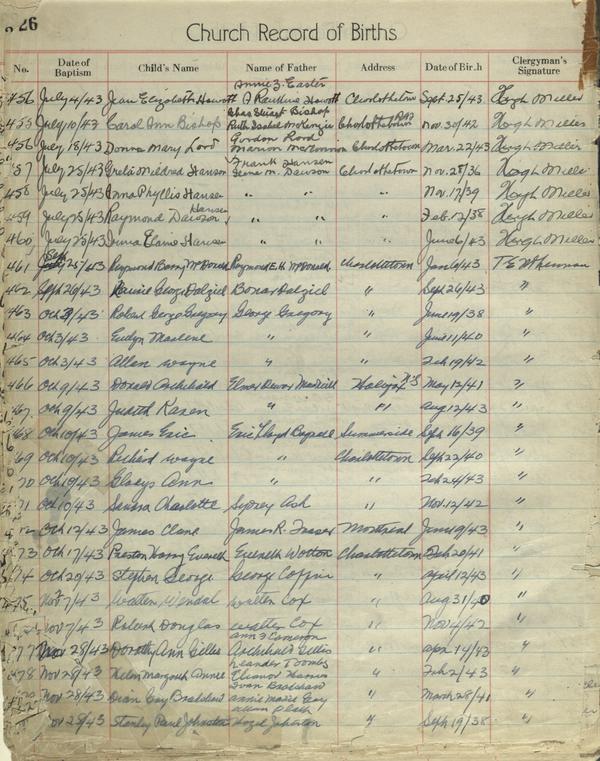 26
Church Record of Births
No. Date of Baptism Child's Name Name of Father Address Date of Birth Clergyman's Signature
Annie Z. Easter
456 July 4/43 Jean Elizabeth Howatt Charlottetown Sept. 25/43 Hugh Miller
Bishop
455 July 10/43 Carol Ann Bishop Ruth Isabel McKenzie Charlottetown Nov. 30/42 Hugh Miller
Gordon Lord
456 July 18/43 Donna Mary Lord Marion McKinnon Charlottetown Mar. 22/43 Hugh Miller
Frank Hansen
457 July 25/43 Mildred Hansen M. Dawson Charlottetown Nov. 28/36 Hugh Miller
458 July 25/43 Anna Phyllis Hansen " " Nov. 17/39 Hugh Miller
459 July 25/43 Raymond Dawson Hansen " " Feb. 12/38 Hugh Miller
460 July 25/43 Elaine Hansen " " June 6/43 Hugh Miller
461 Sept 25/43 Raymond Barry McDonald Raymond E.H. McDonald Charlottetown Jan 6/43
462 Sept 26/43 George Dalziel Bonar Dalziel " Sept 26/43 "
463 Oct 3/43 Robert George Gregory George Gregory " June 19/38 "
464 Oct 3/43 Evelyn Marlene " " June 11/40 "
465 Oct 3/43 Allan Wayne " " Feb 19/42 "
466 Oct 9/43 Donald Archibald Elmer Halifax N.S May 12/41 "
467 Oct 9/43 Judith Karen " " Aug 12/43 "
468 Oct 10/43 James Eric Eric Lloyd Summerside Sept 16/39 "
469 Oct 10/43 Richard Wayne " Charlottetown Sept 22/40 "
470 Oct 10/43 Gladys Ann " " Feb 24/43 "
471 Oct 10/43 Charlotte Sydney Ash " Nov. 12/42 "
472 Oct 12/43 James Clane James R. Fraser Montreal June 19/43 "
473 Oct 17/43 Preston Harry Evereth Evereth Wotton Charlottetown Feb 20/41 "
474 Oct 20/43 Stephen George George Coffin " April 12/43 "
475 Nov 7/43 Walter Wendal Walter Cox " Aug 31/40 "
Nov 7/43 Robert Douglas Walter Cox " Nov 4/42 "
Ann F Cameron
477 Nov 28/43 Dorothy Ann Gillis Archibald Gillis " Apr. 14/43 "
Leander Toombs
478 Nov 28/43 Helen Margaret Annie Eleanor " Feb 2/43 "
Ivan Bradshaw
Nov 28/43 Gay Bradshaw Annie Marie Gay " March 28/41 "
Nov 28/43 Stanley Paul Johnston Hazel Johnston " Sept 19/38 "